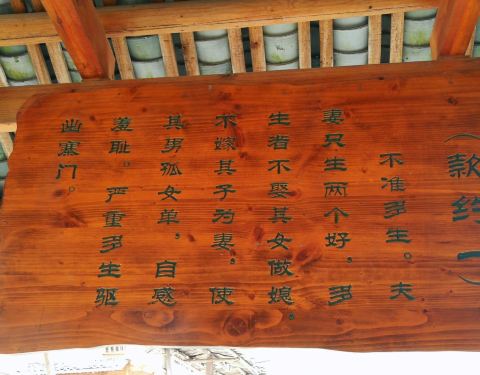 （款约一）
不准多生。夫
妻只生两个好。多
生者不娶其女做媳。
不嫁其子为妻。使
其男孤女单。自感
羞耻。严重多生驱
出寨门。